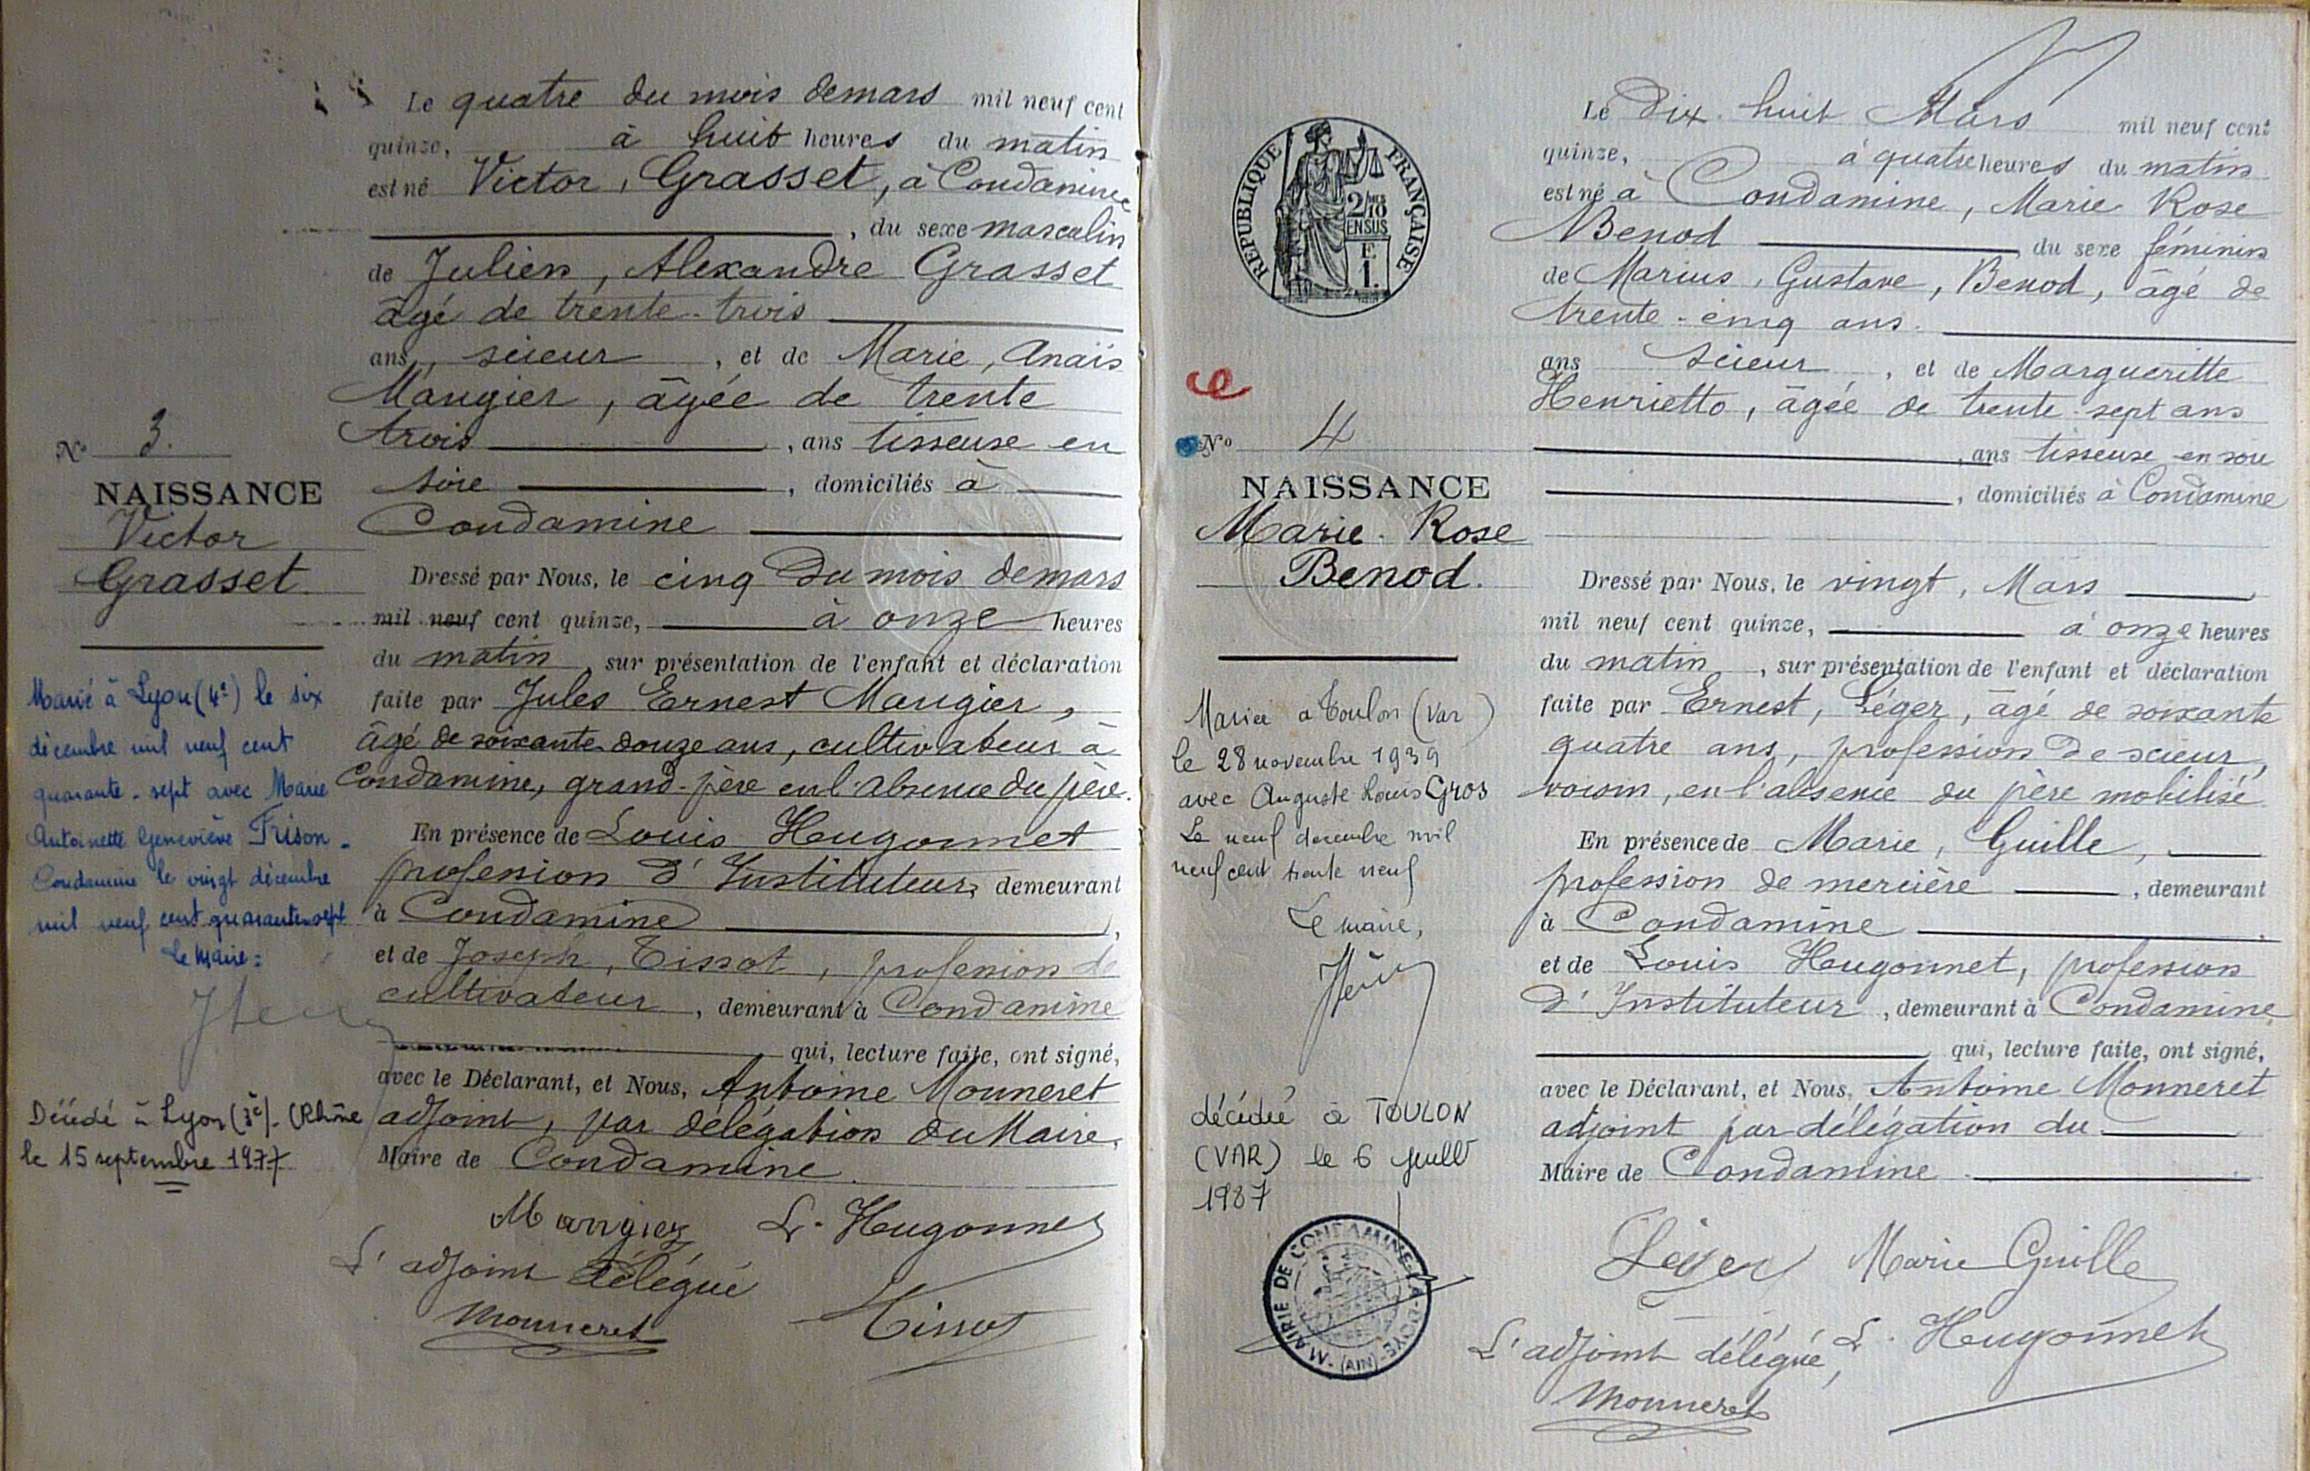 Le quatre du mois de mars mil neuf cent
quinze, à huit heures du matin
est né Victor, Grasset, à Condamine
, du sexe masculin
de Julien, Alexandre Grasset
âgé de trente-trois
ans, scieur, et de Marie, Anaïs
Maugier, âgée de trente
trois, ans tisseuse en
soie, domiciliés à
Condamine
No 3.
NAISSANCE
Victor
Grasset.
Dressé par Nous, le cinq du mois de mars
mil neuf cent quinze, à onze heures
du matin, sur présentation de l'enfant et déclaration
faite par Jules Ernest Maugier,
âgé de soixante-douze ans, cultivateur à
Condamine, grand-père en l'absence du père.
En présence de Louis Hugonnet
profession d'Instituteur, demeurant
à Condamine,
et de Joseph, Tissot, profession de
cultivateur, demeurant à Condamine
qui, lecture faite, ont signé,
avec le Déclarant, et Nous, Antoine Monneret
adjoint, par délégation du Maire,
Maire de Condamine.
Maugier L. Hugonnet
L'adjoint délégué
Monneret Tissot
Marié à Lyon (4e) le six
décembre mil neuf cent
quarante-sept avec Marie
Antoinette Geneviève Frison.
Condamine le vingt décembre
mil neuf cent quarante-sept
Le Maire:
Décédé à Lyon (3e). (Rhône
le 15 septembre 1977
REPUBLIQUE FRANÇAISE
2/10
EN SUS
F.
1.
Le Dix-huit Mars mil neuf cent
quinze, à quatre heures du matin
est né à Condamine, Marie Rose
Benod du sexe féminin
de Marius, Gustave, Benod, âgé de
trente-cinq ans.
ans scieur, et de Margueritte
Henrietto, âgée de trente-sept ans
, ans tisseuse en soie
, domiciliés à Condamine
No 4
NAISSANCE
Marie-Rose
Benod.
Dressé par Nous, le vingt, Mars
mil neuf cent quinze, à onze heures
du matin, sur présentation de l'enfant et déclaration
faite par Ernest, Léger, âgé de soixante
quatre ans, profession de scieur,
voisin, en l'absence du père mobilisé
En présence de Marie, Guille,
profession de mercière, demeurant
à Condamine
et de Louis Hugonnet, profession
d'Instituteur, demeurant à Condamine
qui, lecture faite, ont signé,
avec le Déclarant, et Nous, Antoine Monneret
adjoint par délégation du
Maire de Condamine
Léger Marie Guille
L'adjoint délégué, L. Hugonnet
Monneret
Mariée à Toulon (Var)
le 28 novembre 1939
avec Auguste Louis Gros
Le neuf décembre mil
neuf cent trente neuf
Le maire,
décédée à TOULON
(VAR) le 6 juillet
1987
MAIRIE DE CONDAMINE-LA-DOYE
(AIN)